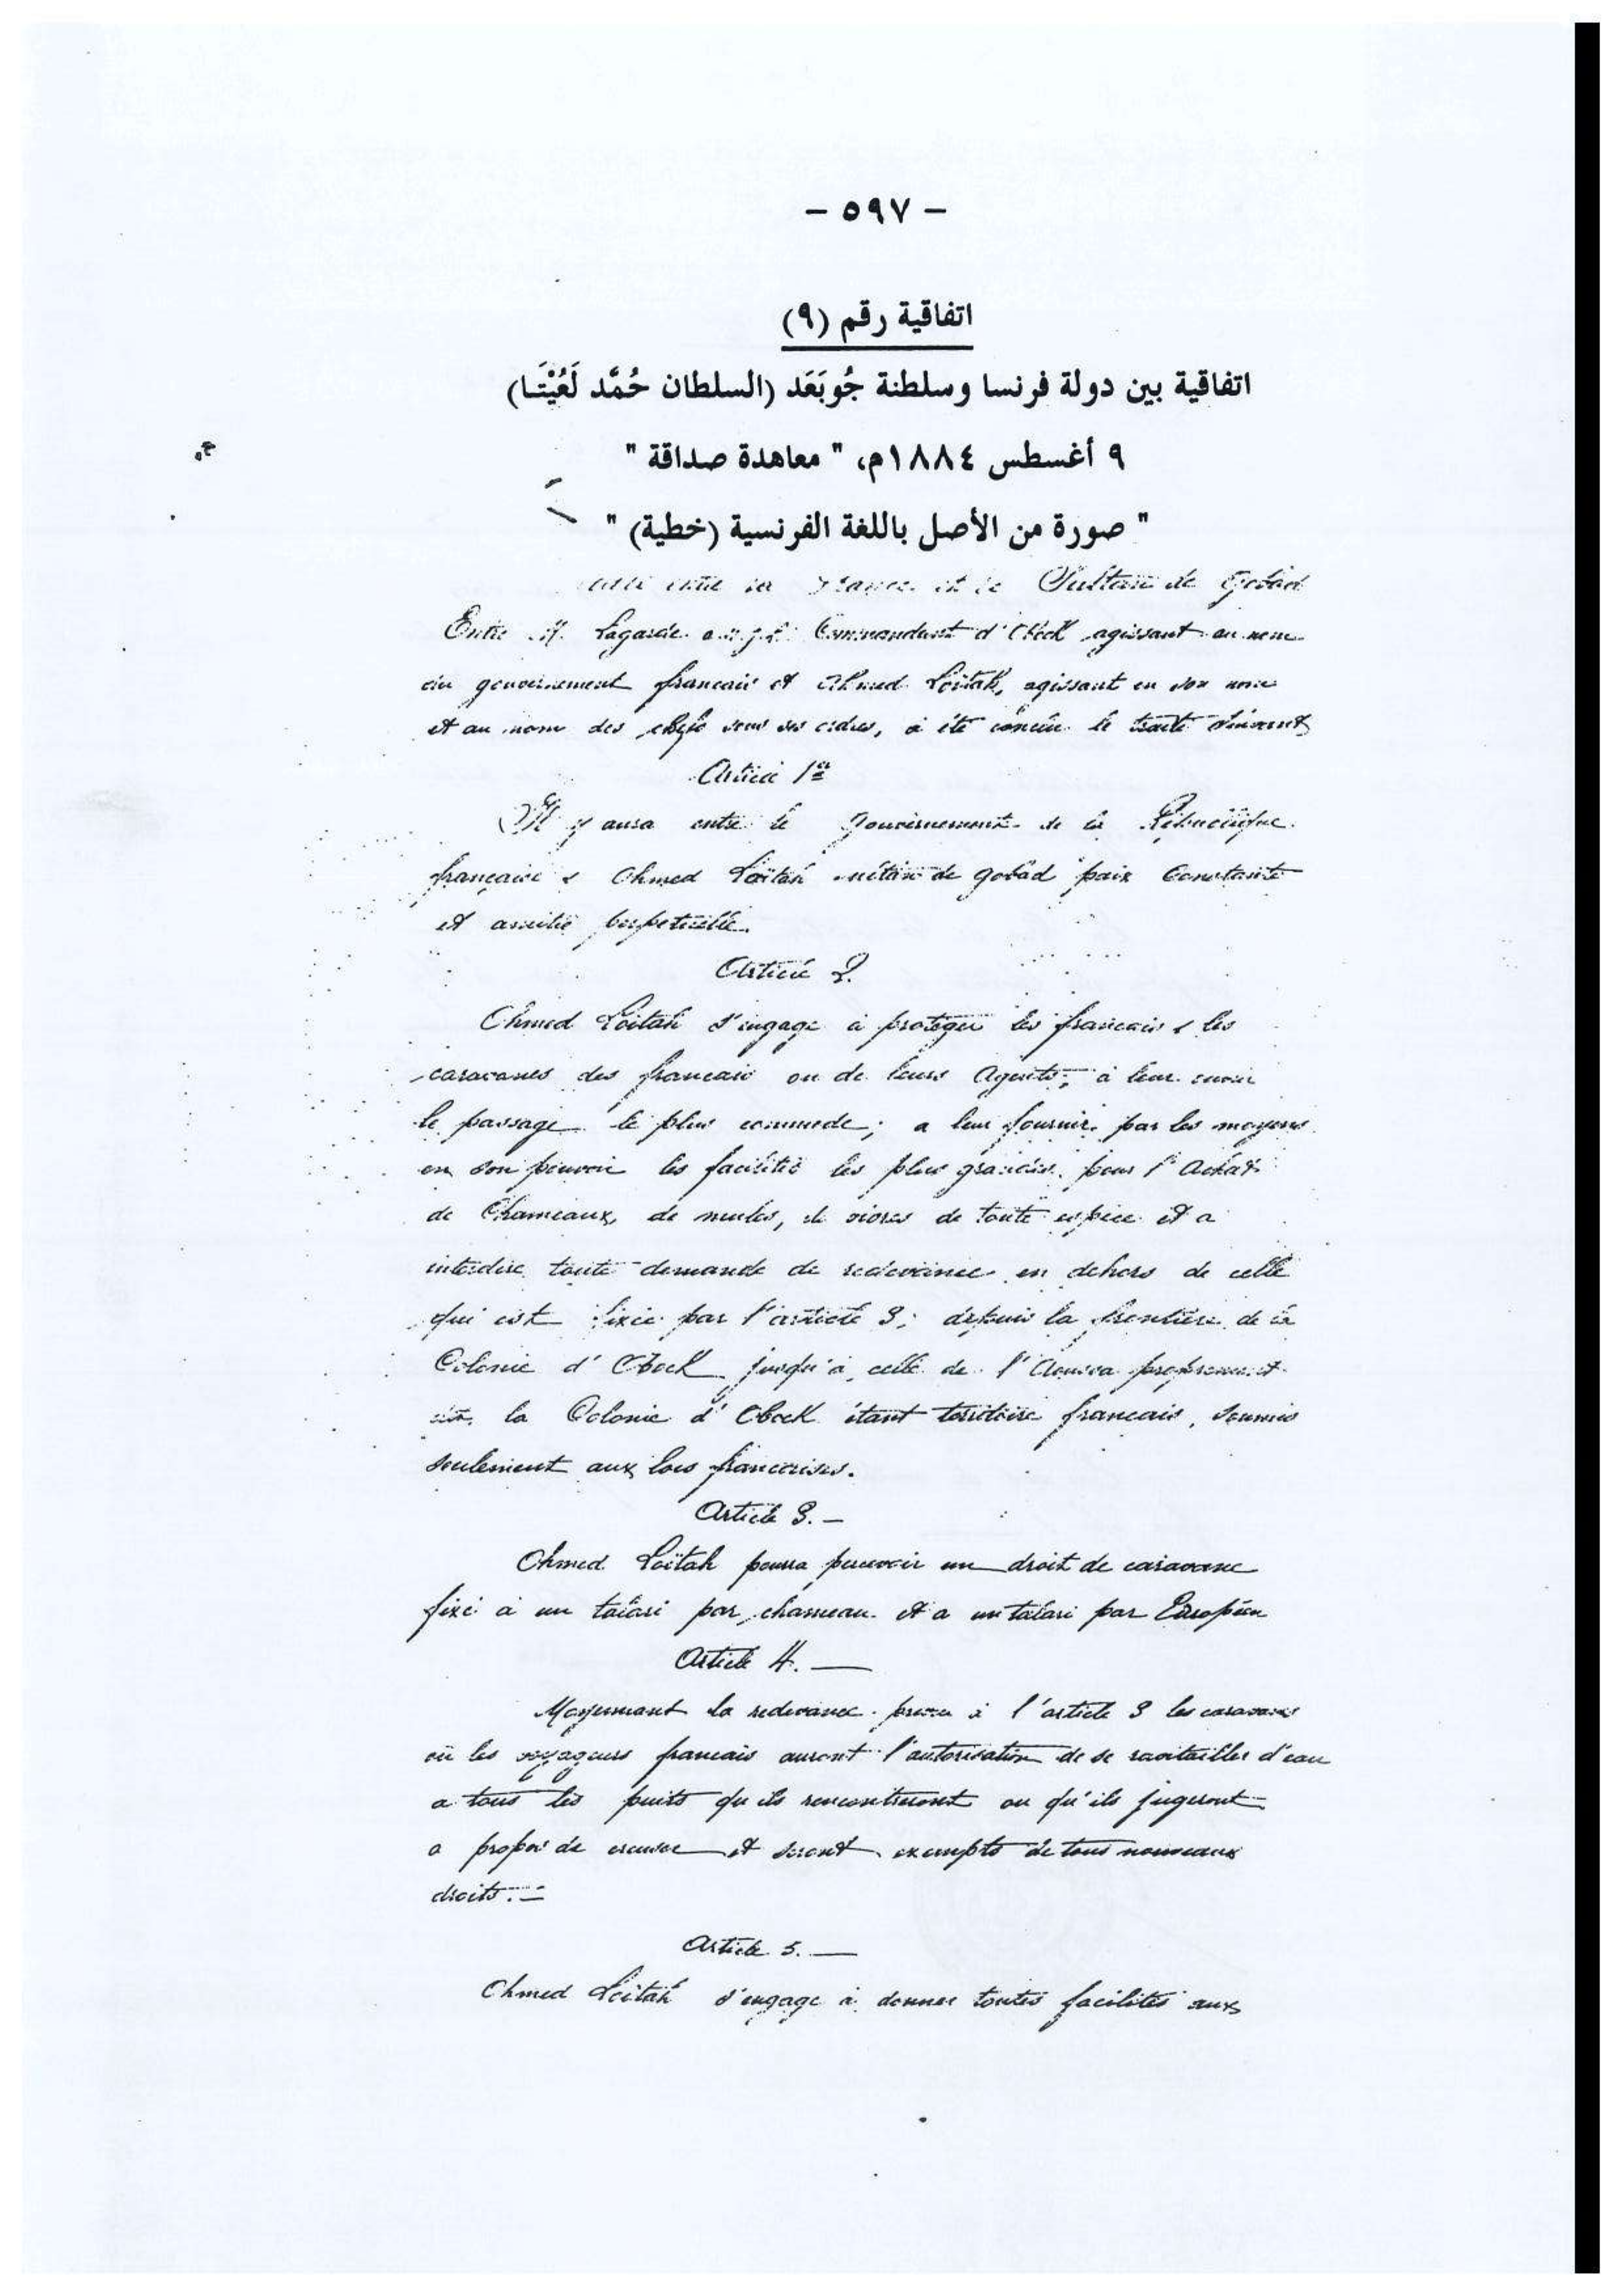 - ٥٩٧ -
اتفاقية رقم (٩)
اتفاقية بين دولة فرنسا وسلطنة جُوبَعَد (السلطان حُمَّد لَعُيْتَـا)
٩ أغسطس ١٨٨٤م، " معاهدة صداقة "
" صورة من الأصل باللغة الفرنسية (خطية) "
entre la France et le Sultan de Gobad
Entre M. Lagarde Commandant d'Obock agissant au nom
du gouvernement francais et Ahmed Loitah, agissant en son nom
et au nom des chefs sous ses ordres, a été conclu le traité suivant
Article 1er
Il y aura entre le Gouvernement de la République
française & Ahmed Loïtah sultan de gobad paix Constante
et amitié perpetuelle.
Article 2.
Ahmed Loitah s'engage à protéger les francais & les
caravanes des francais ou de leurs Agents; à leur
le passage le plus commode; a leur fournir par les moyens
en son pouvoir les facilités les plus grandes pour l'Achat
de Chameaux, de mules, de vivres de toute espèce et a
interdire toute demande de redevance en dehors de celle
qui est fixée par l'article 3; depuis la frontière de la
Colonie d'Obock jusqu'à celle de l'Aoussa proprement
dit, la Colonie d'Obock étant territoire francais, soumis
seulement aux lois francaises.
Article 3. —
Ahmed Loïtah pourra percevoir un droit de caravane
fixé à un talari par chameau et a un talari par Européen
Article 4. —
Moyennant la redevance prevu à l'article 3 les caravanes
ou les voyageurs francais auront l'autorisation de se ravitailler d'eau
a tous les puits qu'ils rencontreront ou qu'ils jugeront
a propos de creuser et seront exempts de tous nouveaux
droits. —
Article 5. —
Ahmed Loitah s'engage à donner toutes facilités aux